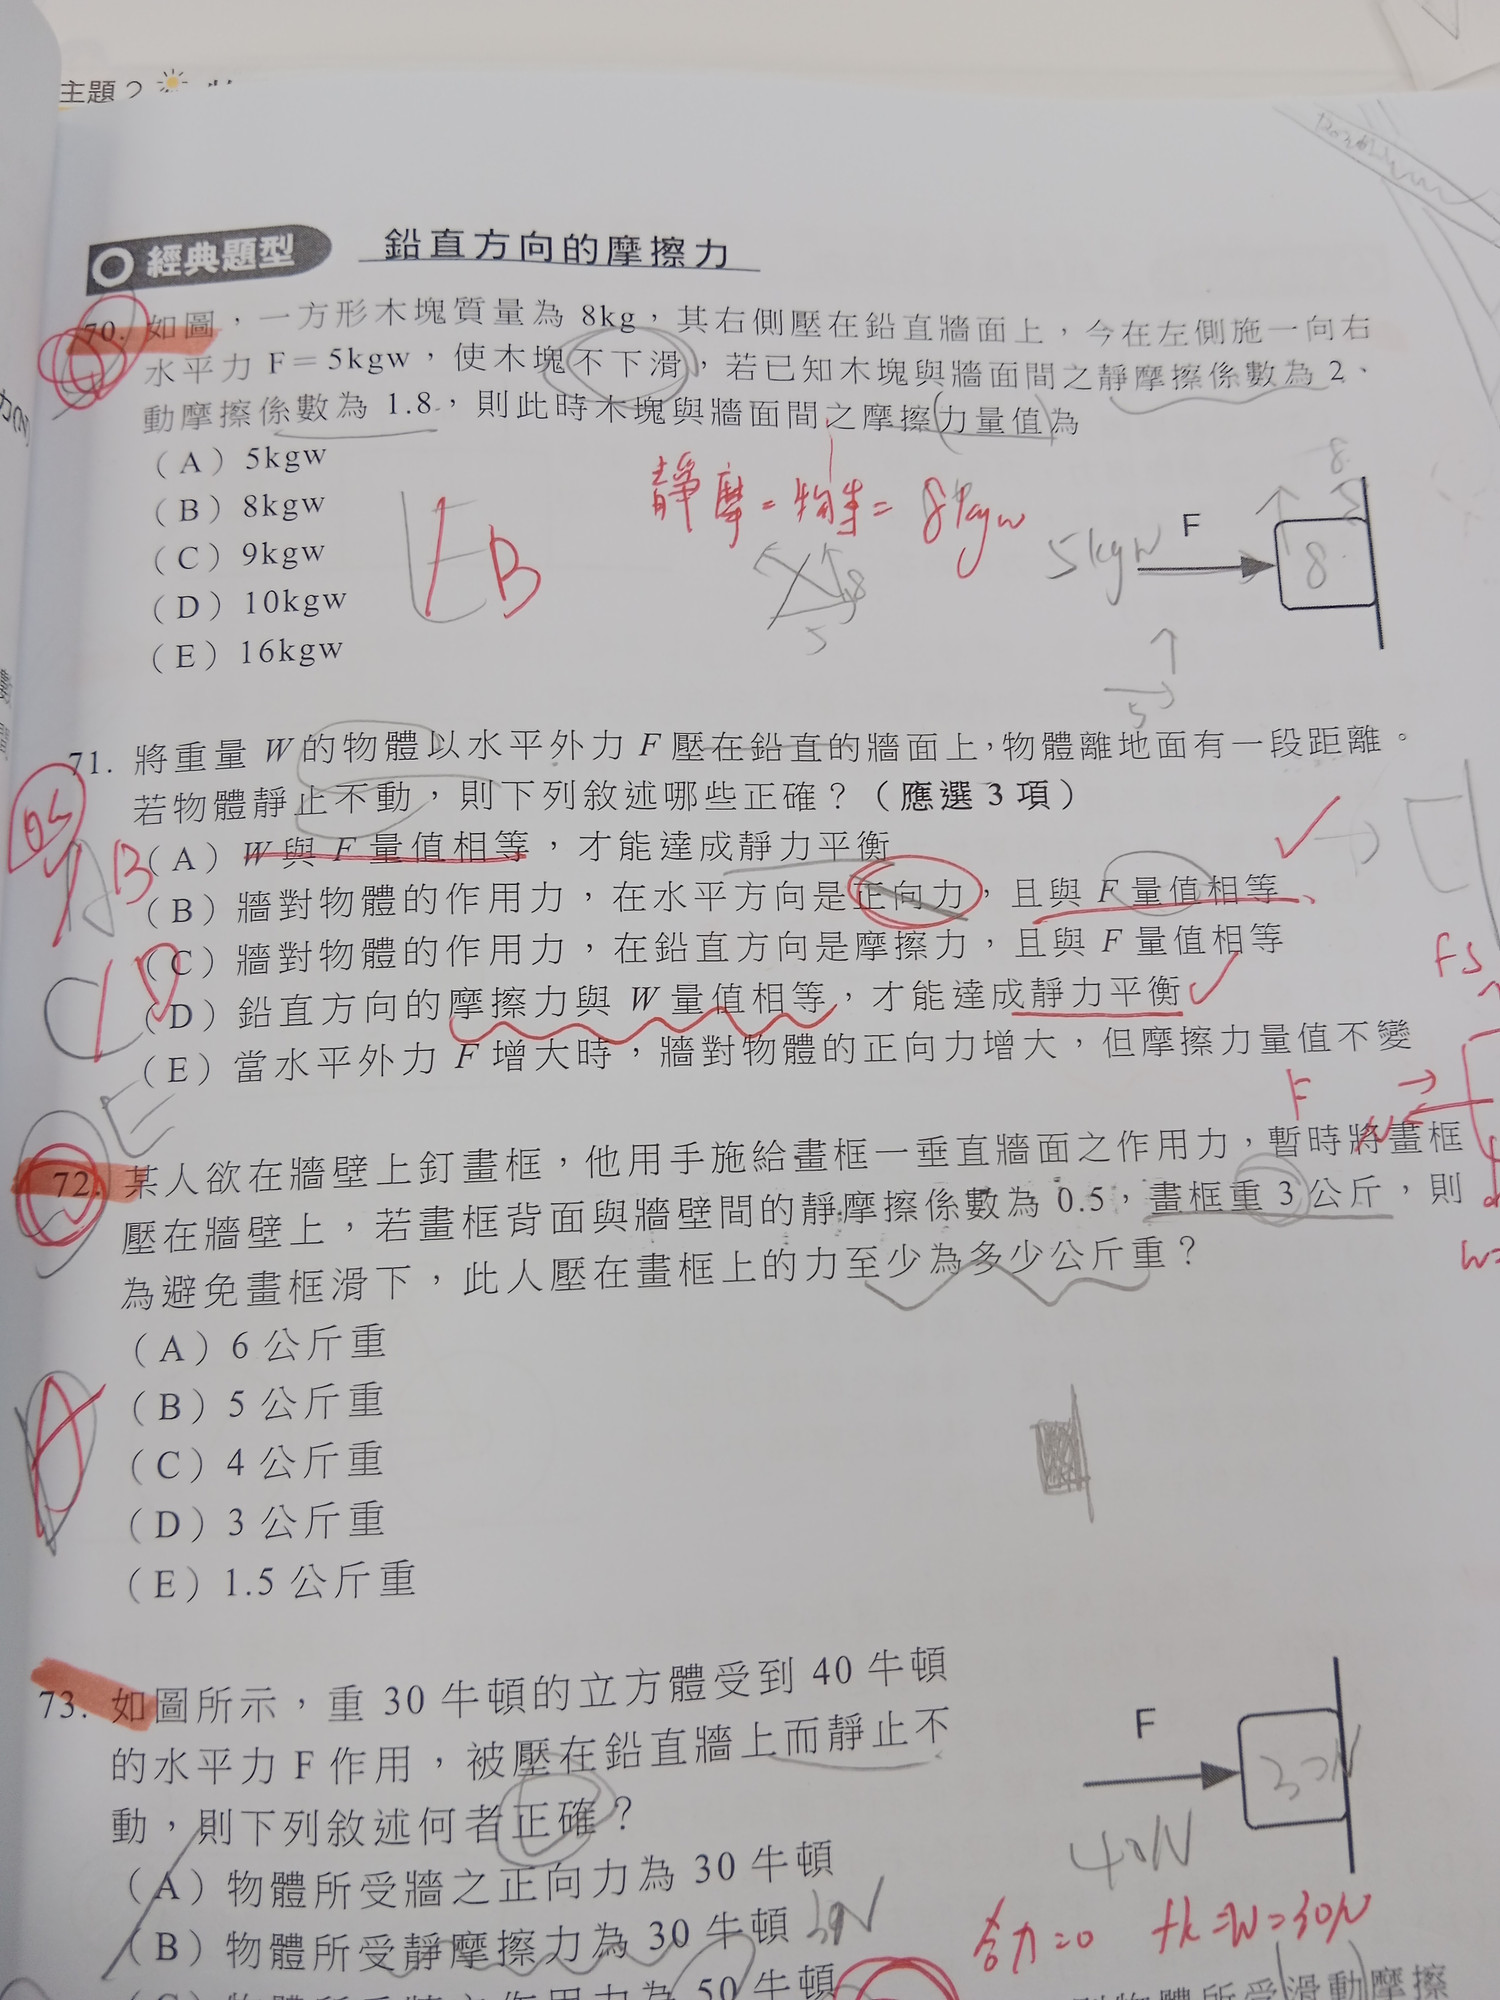 主題2
經典題型 鉛直方向的摩擦力
70. 如圖，一方形木塊質量為 8kg，其右側壓在鉛直牆面上，今在左側施一向右
水平力 F＝5kgw，使木塊不下滑，若已知木塊與牆面間之靜摩擦係數為 2、
動摩擦係數為 1.8，則此時木塊與牆面間之摩擦力量值為
（A）5kgw
（B）8kgw
（C）9kgw
（D）10kgw
（E）16kgw
B
靜摩=物重=8kgw
8
5
5kgw
F
8
8
5
71. 將重量 W 的物體以水平外力 F 壓在鉛直的牆面上，物體離地面有一段距離。
若物體靜止不動，則下列敘述哪些正確？（應選 3 項）
（A）W 與 F 量值相等，才能達成靜力平衡
（B）牆對物體的作用力，在水平方向是正向力，且與 F 量值相等
（C）牆對物體的作用力，在鉛直方向是摩擦力，且與 F 量值相等
（D）鉛直方向的摩擦力與 W 量值相等，才能達成靜力平衡
（E）當水平外力 F 增大時，牆對物體的正向力增大，但摩擦力量值不變
B
D
E
fs
F
N
72. 某人欲在牆壁上釘畫框，他用手施給畫框一垂直牆面之作用力，暫時將畫框
壓在牆壁上，若畫框背面與牆壁間的靜摩擦係數為 0.5，畫框重 3 公斤，則
為避免畫框滑下，此人壓在畫框上的力至少為多少公斤重？
W=
（A）6 公斤重
（B）5 公斤重
（C）4 公斤重
（D）3 公斤重
（E）1.5 公斤重
A
73. 如圖所示，重 30 牛頓的立方體受到 40 牛頓
的水平力 F 作用，被壓在鉛直牆上而靜止不
動，則下列敘述何者正確？
（A）物體所受牆之正向力為 30 牛頓
（B）物體所受靜摩擦力為 30 牛頓
30N
F
30N
40N
合力=0 fk=W=30N
物體所受滑動摩擦